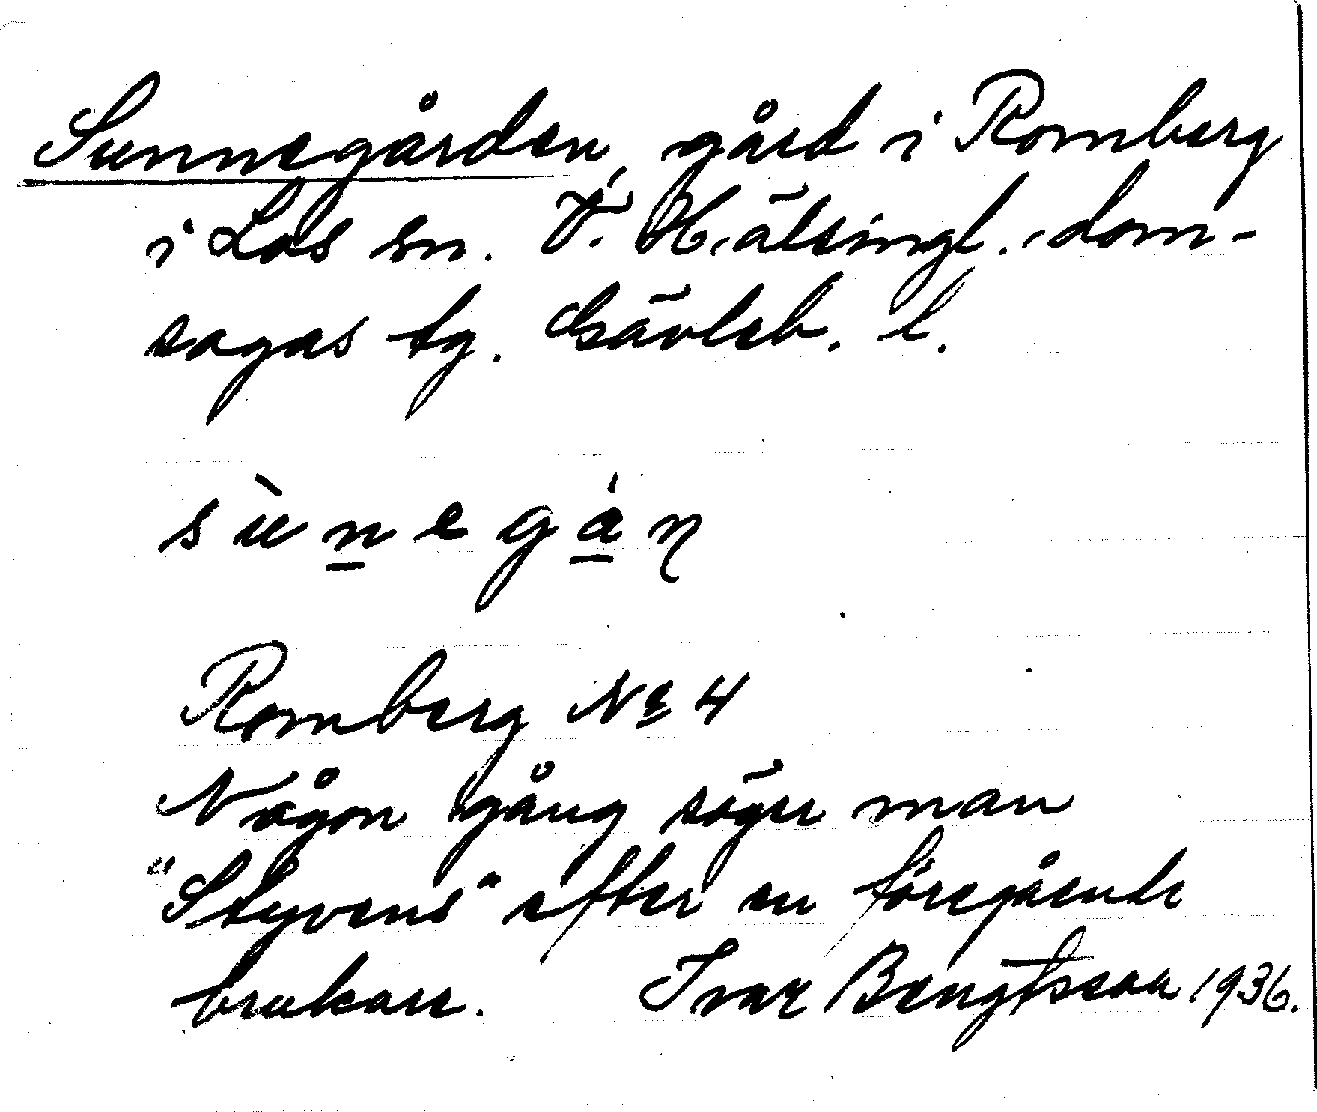 Sunnegården, gård i Romberg
i Los sn. V. Hälsingl. dom-
sagas tg. Gävleb. l.
sùnegán
Romberg No 4
Någon gång säger man
"Styvens" efter en föregående
brukare. Ivar Bengtsson 1936.